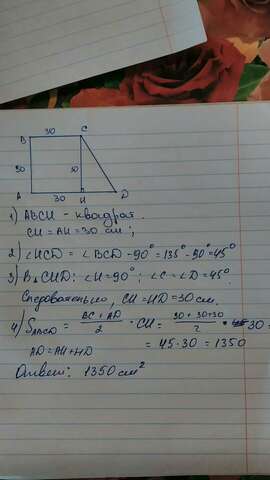 30
B C
30 30
A 30 H D
1) ABCH - квадрат.
CH = AH = 30 см;
2) ∠HCD = ∠BCD - 90° = 135° - 90° = 45°
3) В △CHD: ∠H = 90°; ∠C = ∠D = 45°.
Следовательно, CH = HD = 30 см.
4) S_ABCD = (BC + AD)/2 · CH = (30 + 30+30)/2 · 30
AD = AH + HD = 45·30 = 1350
Ответ: 1350 см²